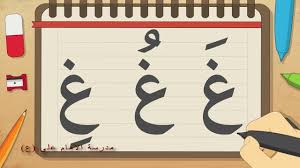 غَ غُ غِ
مدرسة الامام علي (ع)